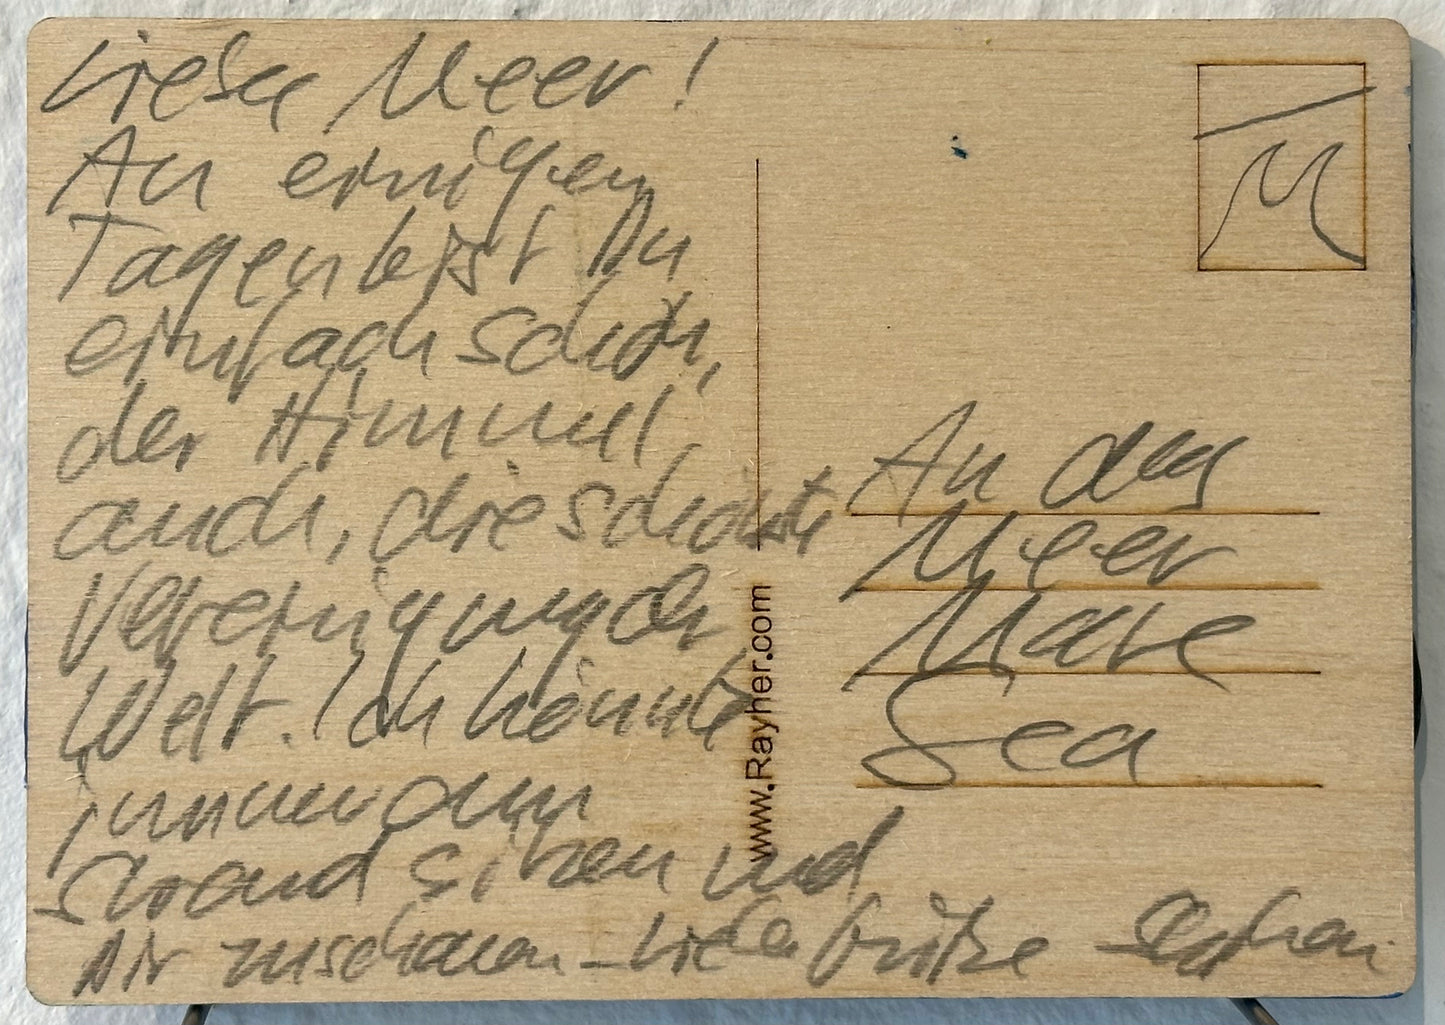 Liebes Meer!
An einigen
Tagen bist Du
einfach schön,
der Himmel
auch, die schönste
Vereinigung der
Welt. Ich könnte
immer am
Strand sitzen und
Dir zuschauen - Liebe Grüße
An das
Meer
Mare
Sea
www.Rayher.com